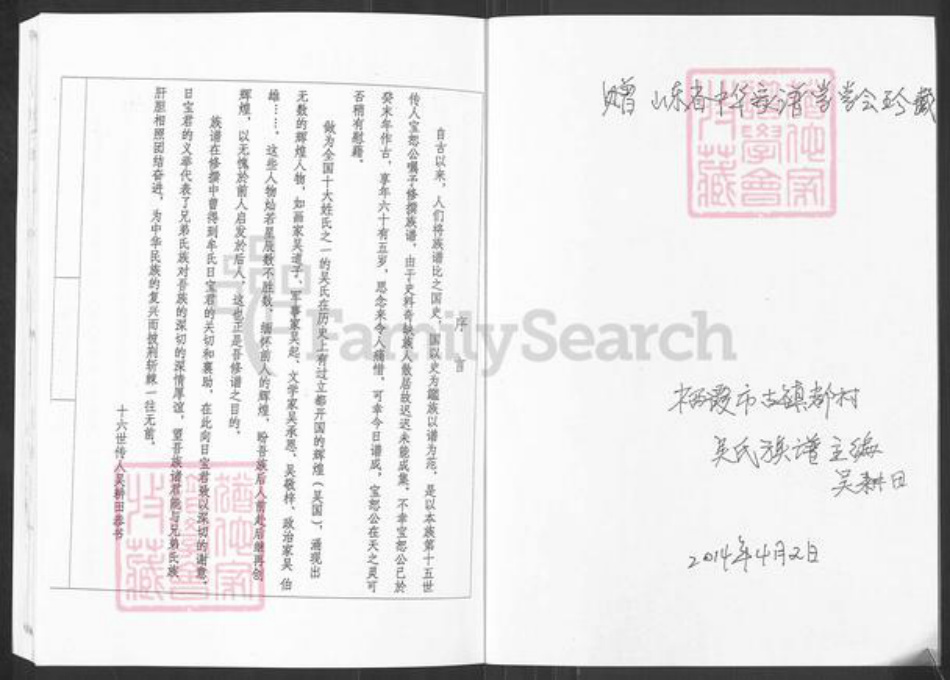 赠 山东省中华族谱学学会珍藏
栖霞市古镇都村
吴氏族谱主编
吴耕田
2014年4月2日
序 言
自古以来，人们将族谱比之国史，国以史为鑑族以谱为范，是以本族第十五世
传人宝恕公嘱予修撰族谱，由于史料奇缺族人散居故迟迟未能成集，不幸宝恕公已於
癸未年作古，享年六十有五岁，思念来令人痛惜，可幸今日谱成，宝恕公在天之灵可
否稍有慰藉。
做为全国十大姓氏之一的吴氏在历史上有过立都开国的辉煌（吴国），涌现出
无数的辉煌人物，如画家吴道子、军事家吴起、文学家吴承恩、吴敬梓、政治家吴 伯
雄……。这些人物灿若星辰数不胜数，缅怀前人的辉煌，盼吾族后人前赴后继再创
辉煌，以无愧於前人启发於后人，这也正是吾修谱之目的。
族谱在修撰中曾得到牟氏日宝君的关切和襄助，在此向日宝君致以深切的谢意，
日宝君的义举代表了兄弟氏族对吾族的深切的深情厚谊，望吾族诸君能与兄弟氏族
肝胆相照团结奋进，为中华民族的复兴而披荆斩棘一往无前。
十六世传人吴耕田恭书
FamilySearch